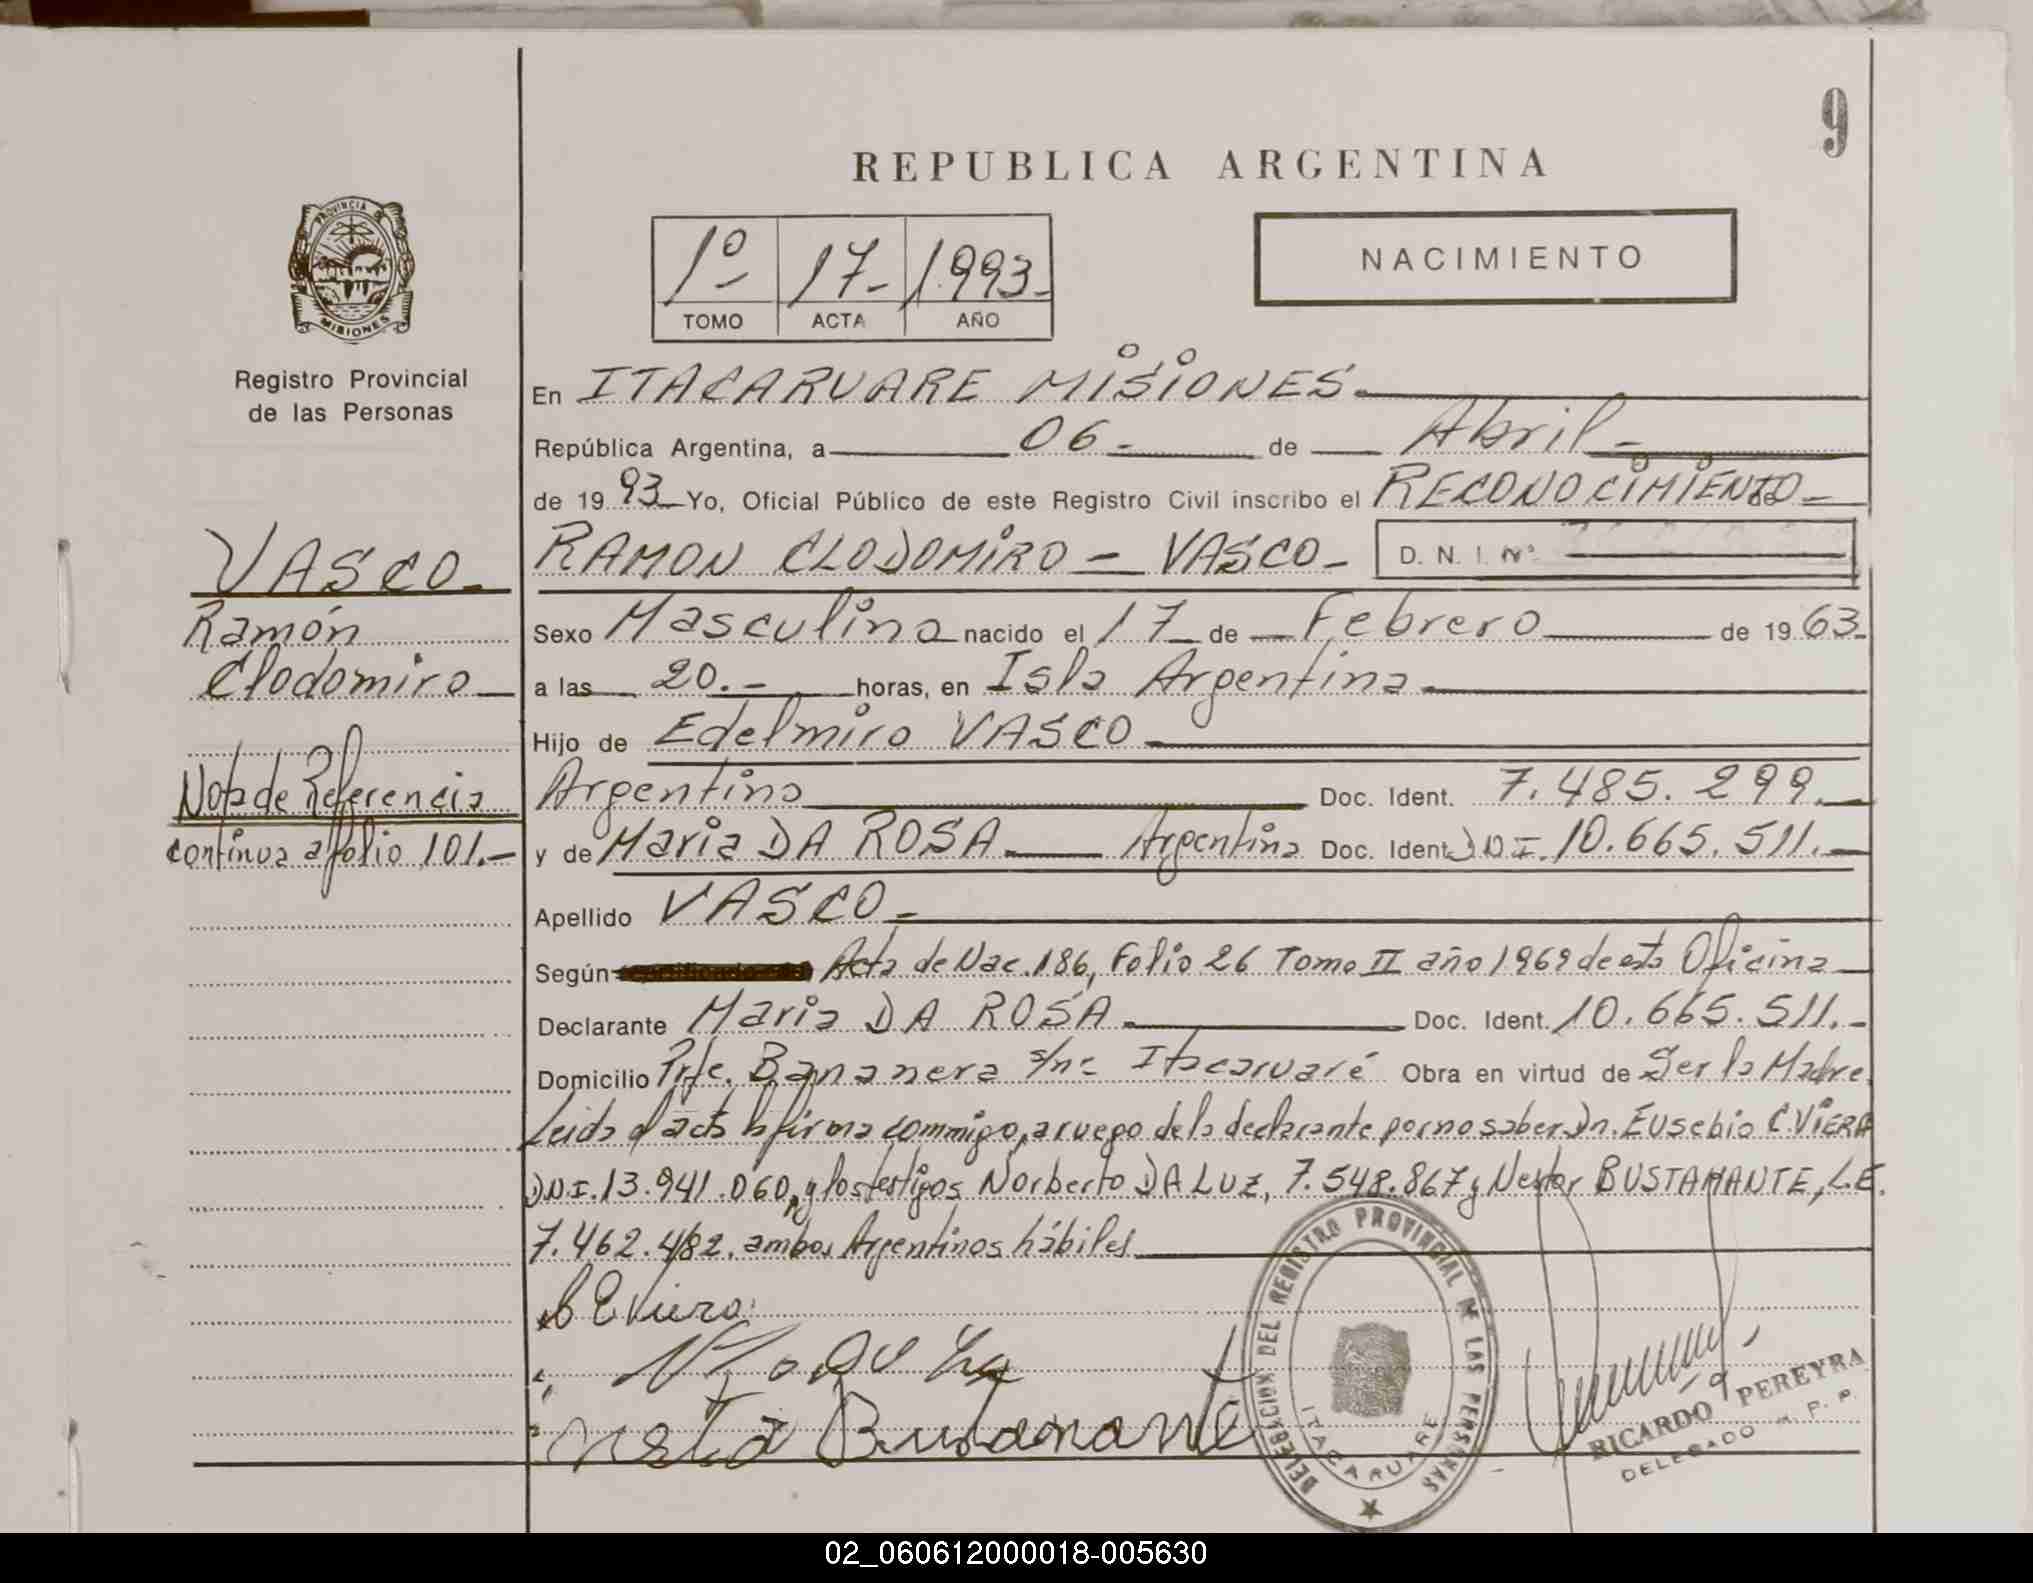 9
REPUBLICA ARGENTINA
PROVINCIA DE
MISIONES
Registro Provincial
de las Personas
1º- 17- 1.993-
TOMO ACTA AÑO
NACIMIENTO
En ITACARUARE MISIONES.
República Argentina, a 06- de Abril-
de 1993 Yo, Oficial Público de este Registro Civil inscribo el RECONOCIMIENTO - de
VASCO-
Ramón
Clodomiro
RAMON CLODOMIRO - VASCO- D. N. I. Nº
Sexo Masculino nacido el 17 de Febrero de 1963-
a las 20.- horas, en Isla Argentina
Hijo de Edelmiro VASCO
Nota de Referencia
continua a folio 101.-
Argentino Doc. Ident. 7.485.299.
y de Maria DA ROSA Argentina Doc. Ident. DNI. 10.665.511.
Apellido VASCO-
Según Acta de Nac. 186, Folio 26 Tomo II año 1969 de esta Oficina
Declarante Maria DA ROSA Doc. Ident. 10.665.511.-
Domicilio Pje. Bananera s/nº Itacaruaré Obra en virtud de Ser la Madre,
Leida el acta la firma commigo, a ruego de la declarante por no saber, Dn. Eusebio C. VIERA
DNI. 13.941.060, y los testigos Norberto DA LUZ, 7.548.867 y Nestor BUSTAMANTE, L.E.
7.462.482. ambos Argentinos hábiles
Viera
Bustamante
DELEGACION DEL REGISTRO PROVINCIAL DE LAS PERSONAS
ITACARUARE
RICARDO PEREYRA
DELEGADO R. P. P.
02_060612000018-005630